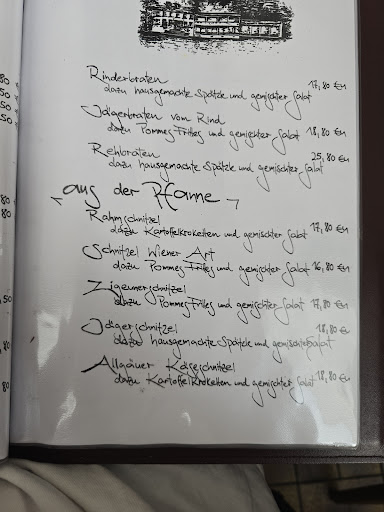 80
50
50
,50
,80
80
,50
,80
80
Rinderbraten 17,80 €
dazu hausgemachte Spätzle und gemischter Salat
Jägerbraten vom Rind
dazu Pommes Frites und gemischter Salat 18,80 €
Rehbraten 25,80 €
dazu hausgemachte Spätzle und gemischter Salat
aus der Pfanne
Rahmschnitzel
dazu Kartoffelkroketten und gemischter Salat 17,80 €
Schnitzel Wiener Art
dazu Pommes Frites und gemischter Salat 16,80 €
Zigeunerschnitzel
dazu Pommes Frites und gemischter Salat 17,80 €
Jägerschnitzel 18,80 €
dazu hausgemachte Spätzle und gemischter Salat
Allgäuer Käseschnitzel
dazu Kartoffelkroketten und gemischter Salat 18,80 €